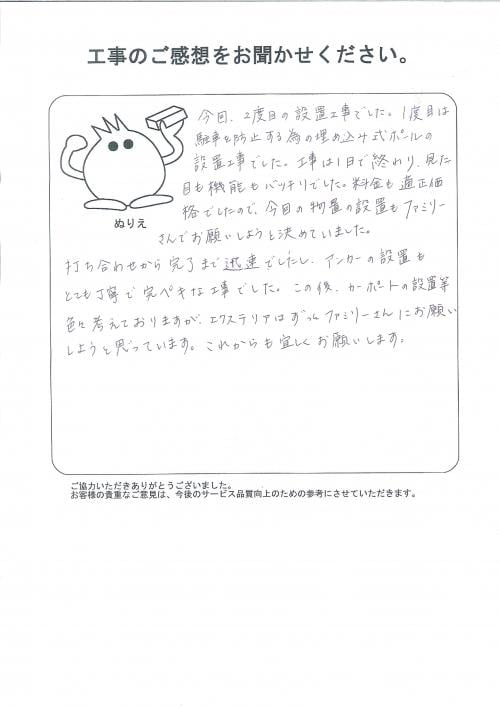 工事のご感想をお聞かせください。
今回、2度目の設置工事でした。1度目は
駐車を防止する為の埋め込み式ポールの
設置工事でした。工事は1日で終わり、見た
目も機能もバッチリでした。料金も適正価
格でしたので、今回の物置の設置もファミリー
ぬりえ
さんでお願いしようと決めていました。
打ち合わせから完了まで迅速でしたし、アンカーの設置も
とても丁寧で完ペキな工事でした。この後、カーポートの設置等
色々考えておりますが、エクステリアはずっとファミリーさんにお願い
しようと思っています。これからも宜しくお願いします。
ご協力いただきありがとうございました。
お客様の貴重なご意見は、今後のサービス品質向上のための参考にさせていただきます。